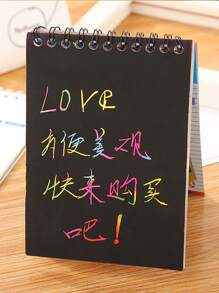 LOVE
方便美观
快来购买
吧！